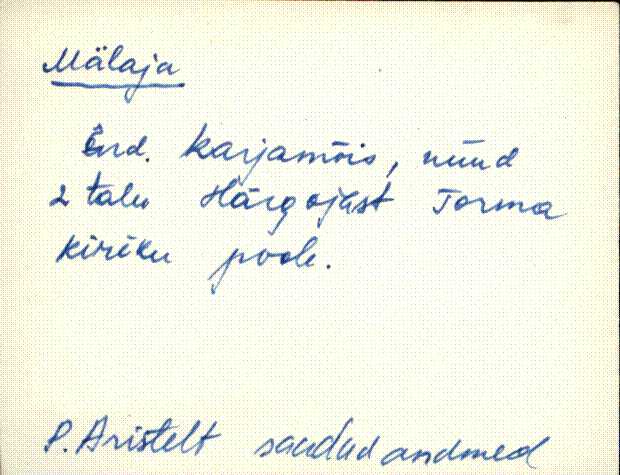 Mälaja
End. karjamõis, nüüd
2 talu Härgojast Torma
kiriku poole.
P. Aristelt saadud andmed